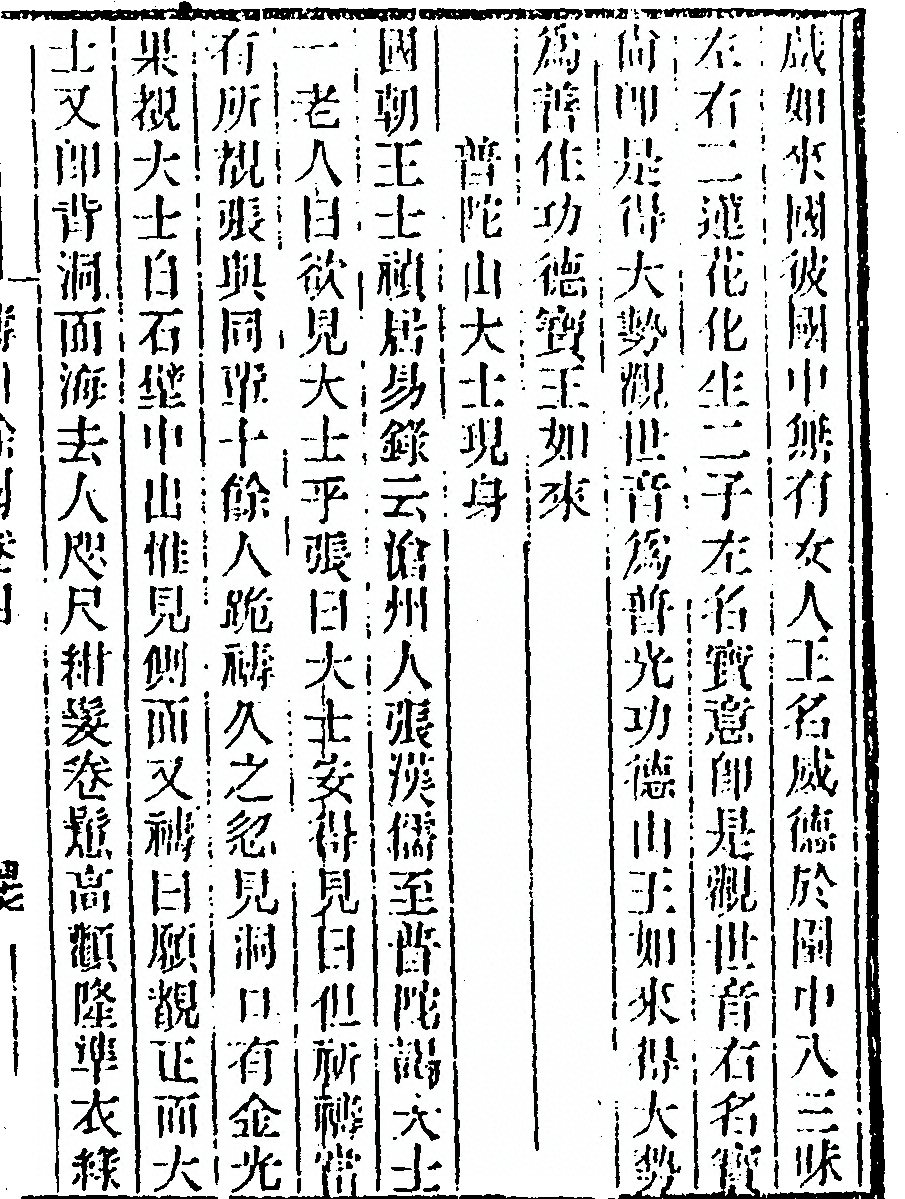 戲如來國彼國中無有女人王名威德於園中入三昧
左右二蓮花化生二子左名寶意即是觀世音右名寶
尚即是得大勢觀世音為普光功德山王如來得大勢
為善住功德寶王如來
普陀山大士現身
國朝王士禎居易錄云滄州人張漢儒至普陀謁大士
一老人曰欲見大士乎張曰大士安得見曰但祈禱當
有所覩張與同輩十餘人跪禱久之忽見洞口有金光
果覩大士自石壁中出惟見側面又禱曰願覩正面大
士又即背洞面海去人咫尺紺髮卷鬈高顙隆準衣綠